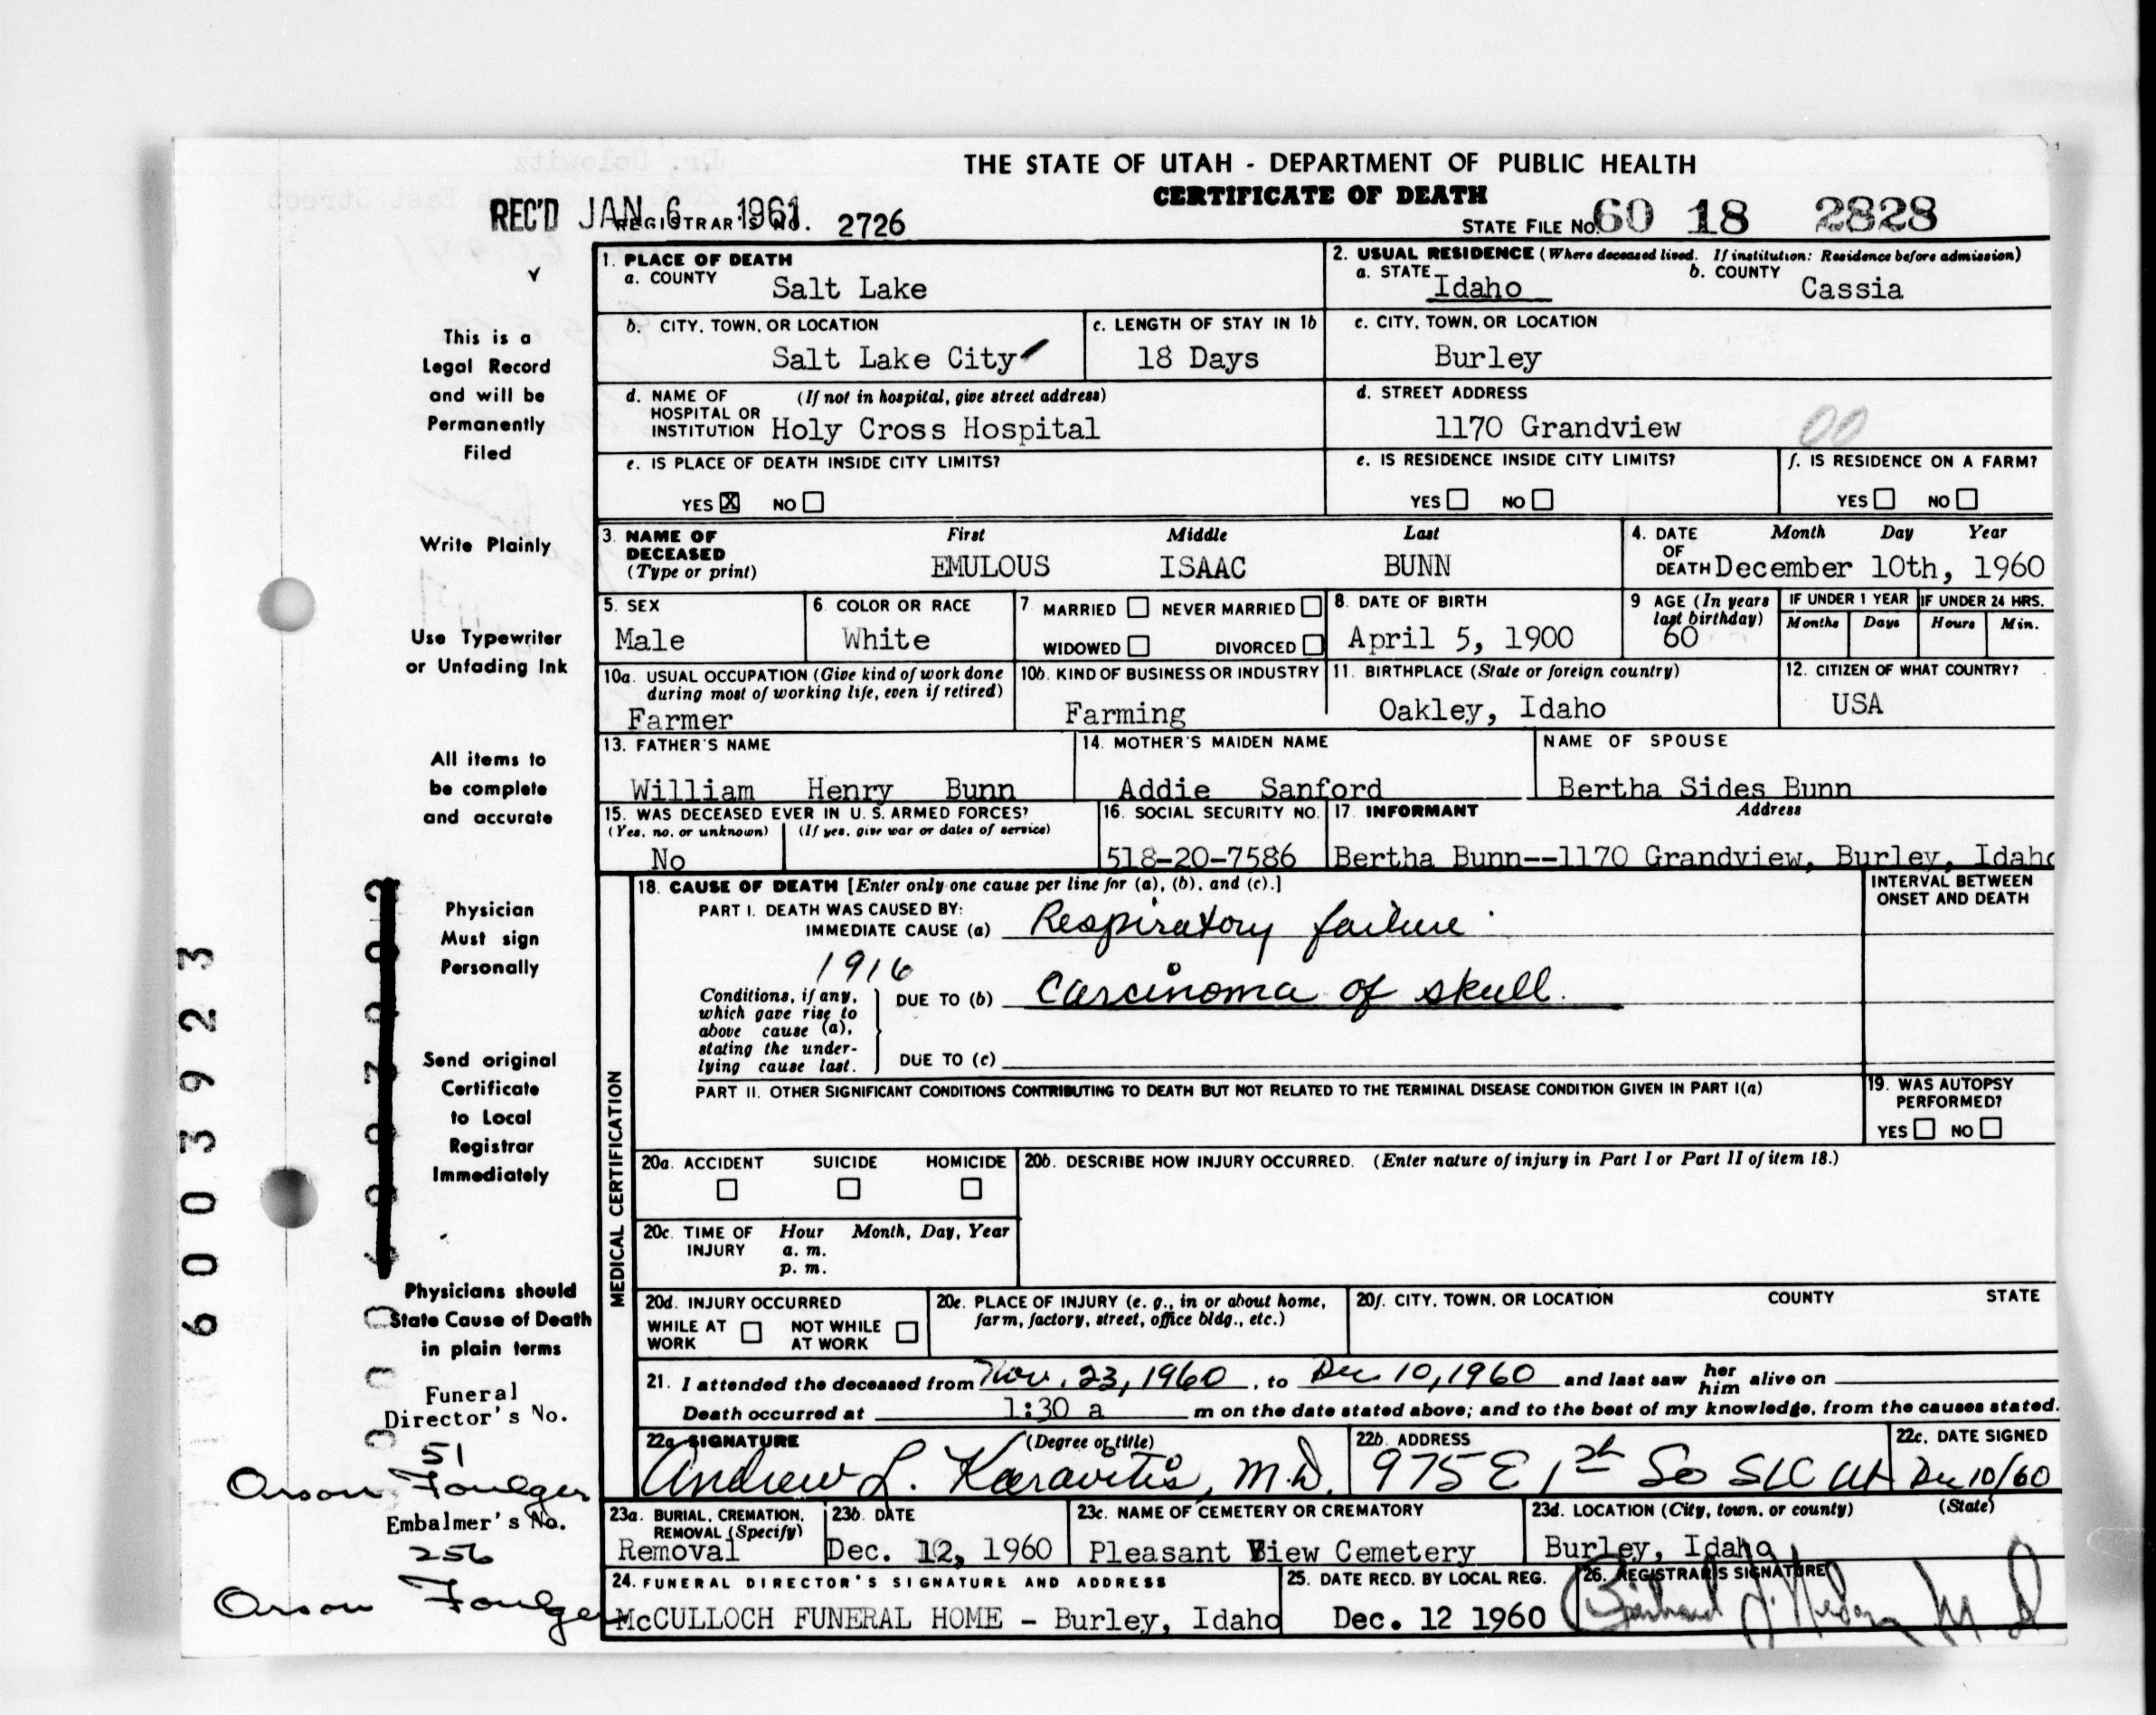 THE STATE OF UTAH - DEPARTMENT OF PUBLIC HEALTH
CERTIFICATE OF DEATH
REC'D JAN 6 1961
REGISTRAR'S NO. 2726
STATE FILE NO. 60 18 2828
This is a
Legal Record
and will be
Permanently
Filed
Write Plainly
Use Typewriter
or Unfading Ink
All items to
be complete
and accurate
Physician
Must sign
Personally
Send original
Certificate
to Local
Registrar
Immediately
Physicians should
State Cause of Death
in plain terms
Funeral
Director's No.
51
Orson Foulger
Embalmer's No.
256
Orson Foulger
6003923
1. PLACE OF DEATH
a. COUNTY Salt Lake
2. USUAL RESIDENCE (Where deceased lived. If institution: Residence before admission)
a. STATE Idaho b. COUNTY Cassia
b. CITY, TOWN, OR LOCATION
Salt Lake City
c. LENGTH OF STAY IN 1b
18 Days
c. CITY, TOWN, OR LOCATION
Burley
d. NAME OF HOSPITAL OR INSTITUTION (If not in hospital, give street address)
Holy Cross Hospital
d. STREET ADDRESS
1170 Grandview 00
e. IS PLACE OF DEATH INSIDE CITY LIMITS?
YES X NO
e. IS RESIDENCE INSIDE CITY LIMITS?
YES NO
f. IS RESIDENCE ON A FARM?
YES NO
3. NAME OF DECEASED (Type or print)
First Middle Last
EMULOUS ISAAC BUNN
4. DATE OF DEATH Month Day Year
December 10th, 1960
5. SEX
Male
6. COLOR OR RACE
White
7 MARRIED NEVER MARRIED
WIDOWED DIVORCED
8. DATE OF BIRTH
April 5, 1900
9 AGE (In years last birthday)
60
IF UNDER 1 YEAR IF UNDER 24 HRS.
Months Days Hours Min.
10a. USUAL OCCUPATION (Give kind of work done during most of working life, even if retired)
Farmer
10b. KIND OF BUSINESS OR INDUSTRY
Farming
11. BIRTHPLACE (State or foreign country)
Oakley, Idaho
12. CITIZEN OF WHAT COUNTRY?
USA
13. FATHER'S NAME
William Henry Bunn
14. MOTHER'S MAIDEN NAME
Addie Sanford
NAME OF SPOUSE
Bertha Sides Bunn
15. WAS DECEASED EVER IN U. S. ARMED FORCES?
(Yes, no, or unknown) (If yes, give war or dates of service)
No
16. SOCIAL SECURITY NO.
518-20-7586
17. INFORMANT Address
Bertha Bunn--1170 Grandview, Burley, Idaho
MEDICAL CERTIFICATION
18. CAUSE OF DEATH [Enter only one cause per line for (a), (b), and (c).]
INTERVAL BETWEEN ONSET AND DEATH
PART I. DEATH WAS CAUSED BY:
IMMEDIATE CAUSE (a) Respiratory failure
1916
Conditions, if any, which gave rise to above cause (a), stating the underlying cause last.
DUE TO (b) Carcinoma of skull.
DUE TO (c)
PART II. OTHER SIGNIFICANT CONDITIONS CONTRIBUTING TO DEATH BUT NOT RELATED TO THE TERMINAL DISEASE CONDITION GIVEN IN PART I(a)
19. WAS AUTOPSY PERFORMED?
YES NO
20a. ACCIDENT SUICIDE HOMICIDE
20b. DESCRIBE HOW INJURY OCCURRED. (Enter nature of injury in Part I or Part II of item 18.)
20c. TIME OF INJURY Hour Month, Day, Year
a. m.
p. m.
20d. INJURY OCCURRED
WHILE AT WORK NOT WHILE AT WORK
20e. PLACE OF INJURY (e. g., in or about home, farm, factory, street, office bldg., etc.)
20f. CITY, TOWN, OR LOCATION COUNTY STATE
21. I attended the deceased from Nov. 23, 1960, to Dec 10, 1960 and last saw her him alive on
Death occurred at 1:30 a m on the date stated above; and to the best of my knowledge, from the causes stated.
22a. SIGNATURE (Degree or title)
Andrew L. Karavitis, M.D.
22b. ADDRESS
975 E 1st So SLC Ut
22c. DATE SIGNED
Dec 10/60
23a. BURIAL, CREMATION, REMOVAL (Specify)
Removal
23b. DATE
Dec. 12, 1960
23c. NAME OF CEMETERY OR CREMATORY
Pleasant View Cemetery
23d. LOCATION (City, town, or county) (State)
Burley, Idaho
24. FUNERAL DIRECTOR'S SIGNATURE AND ADDRESS
McCULLOCH FUNERAL HOME - Burley, Idaho
25. DATE RECD. BY LOCAL REG.
Dec. 12 1960
26. REGISTRAR'S SIGNATURE